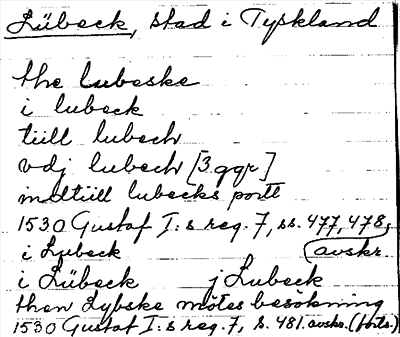 Lübeck, stad i Tyskland
the lubeske
i lubeck
tiill lubech
vdj lubech [3 ggr]
modtiill lubecks portt
1530 Gustaf I:s reg. 7, ss. 477, 478,
i Lubeck (avskr.
i Lübeck j Lubeck
then Lybske mötes besökning
1530 Gustaf I:s reg. 7, s. 481. avskr. (forts.)